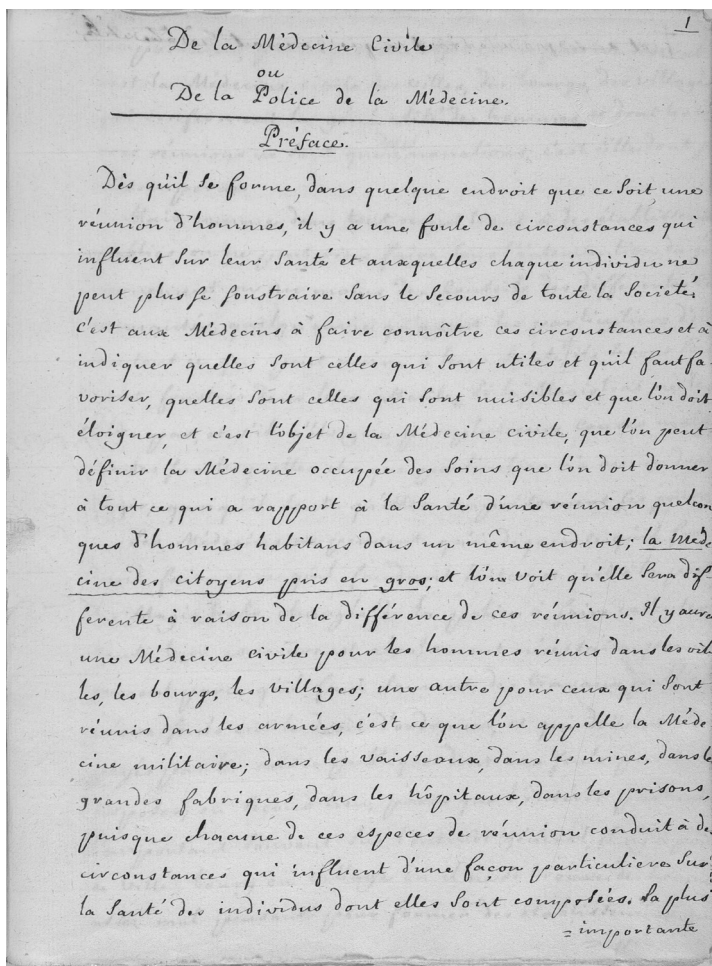 1
De la Médecine Civile
ou
De la Police de la Médecine.
Préface.
Dès qu'il se forme, dans quelque endroit que ce soit, une
réunion d'hommes, il y a une foule de circonstances qui
influent sur leur santé et auxquelles chaque individu ne
peut plus se soustraire sans le secours de toute la Société;
c'est aux Médecins à faire connoître ces circonstances et à
indiquer quelles sont celles qui sont utiles et qu'il faut fa-
voriser, quelles sont celles qui sont nuisibles et que l'on doit
éloigner, et c'est l'objet de la Médecine civile, que l'on peut
définir la Médecine occupée des soins que l'on doit donner
à tout ce qui a rapport à la santé d'une réunion quelcon
ques d'hommes habitans dans un même endroit; la Méde
cine des citoyens pris en gros; et l'on voit qu'elle sera dif-
ferente à raison de la différence de ces réunions. Il y aura
une Médecine civile pour les hommes réunis dans les vil
les, les bourgs, les villages; une autre pour ceux qui sont
réunis dans les armées, c'est ce que l'on appelle la Méde
cine militaire; dans les vaisseaux, dans les mines, dans le
grandes fabriques, dans les hôpitaux, dans les prisons,
puisque chacune de ces especes de réunion conduit à de
circonstances qui influent d'une façon particuliere sur
la santé des individus dont elles sont composées. la plus
= importante